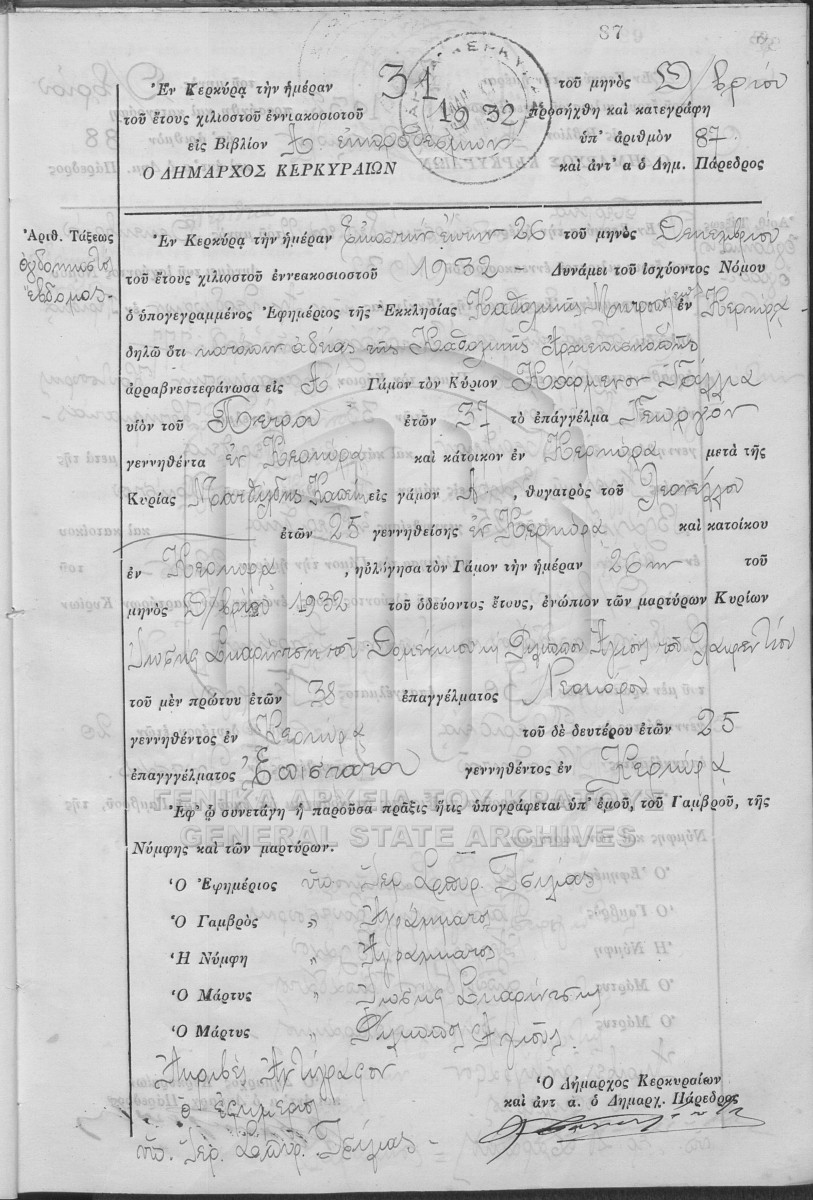 87
Ἐν Κερκύρᾳ τὴν ἡμέραν 31 τοῦ μηνὸς Δ/βρίου
τοῦ ἔτους χιλιοστοῦ ἐννιακοσιοτοῦ 1932 προσήχθη καὶ κατεγράφη
εἰς Βιβλίον Α ἐκπροθέσμων ὑπ' ἀριθμὸν 87
Ο ΔΗΜΑΡΧΟΣ ΚΕΡΚΥΡΑΙΩΝ καὶ ἀντ' α ὁ Δημ. Πάρεδρος
Ἀριθ. Τάξεως
ὀγδοηκοστὸν
ἕβδομον
Ἐν Κερκύρᾳ τὴν ἡμέραν Εἰκοστὴν ἕκτην 26 τοῦ μηνὸς Δεκεμβρίου
τοῦ ἔτους χιλιοστοῦ ἐννεακοσιοστοῦ 1932 – Δυνάμει τοῦ ἰσχύοντος Νόμου
ὁ ὑπογεγραμμένος Ἐφημέριος τῆς Ἐκκλησίας Καθολικῆς Μητροπόλεως ἐν Κερκύρᾳ -
δηλῶ ὅτι κατόπιν ἀδείας τῆς Καθολικῆς Ἀρχιεπισκοπῆς
ἀρραβνεστεφάνωσα εἰς Α' Γάμον τὸν Κύριον Κάρμενον
υἱὸν τοῦ Πέτρου ἐτῶν 37 τὸ ἐπάγγέλμα Γεωργὸν
γεννηθέντα ἐν Κερκύρᾳ καὶ κάτοικον ἐν Κερκύρᾳ μετὰ τῆς
Κυρίας Ματθίλδης εἰς γάμον Α. , θυγατρὸς τοῦ Λεονέλλου
ἐτῶν 25 γεννηθείσης ἐν Κερκύρᾳ καὶ κατοίκου
ἐν Κερκύρᾳ , ηὐλόγησα τὸν Γάμον τὴν ἡμέραν 26ην τοῦ
μηνὸς Δ/βρίου 1932 τοῦ ὁδεύοντος ἔτους, ἐνώπιον τῶν μαρτύρων Κυρίων
Ἰωσὴφ τοῦ Δομενίκου κ Φίλιππον Ἀγιοὺς τοῦ Λαυρεντίου
τοῦ μὲν πρώτυ ἐτῶν 38 ἐπαγγέλματος Νεωκόρου
γεννηθέντος ἐν Κερκύρᾳ τοῦ δὲ δευτέρου ἐτῶν 25
ἐπαγγγέλματος Ἐπιστάτου γεννηθέντος ἐν Κερκύρᾳ
ΓΕΝΙΚΑ ΑΡΧΕΙΑ ΤΟΥ ΚΡΑΤΟΥΣ
Ἐφ' ᾧ συνετάγη ἡ παροῦσα πρᾶξις ἥτις ὑπογράφεται ὑπ' ἐμοῦ, τοῦ Γαμβροῦ, τῆς
GENERAL STATE ARCHIVES
Νύμφης καὶ τῶν μαρτύρων.
Ὁ Ἐφημέριος ὑπ. Ἱερ. Σπυρ.
Ὁ Γαμβρὸς „ Ἀγράμματος
Ἡ Νύμφη „ Ἀγράμματος
Ὁ Μάρτυς „ Ἰωσὴφ
Ὁ Μάρτυς „ Φίλιππος Ἀγιοὺς
Ἀκριβὲς Ἀντίγραφον
Ὁ Δήμαρχος Κερκυραίων
ὁ ἐφημέριος
καὶ ἀντ α. ὁ Δημαρχ. Πάρεδρος
ὑπ. Ἱερ. Σπυρ.